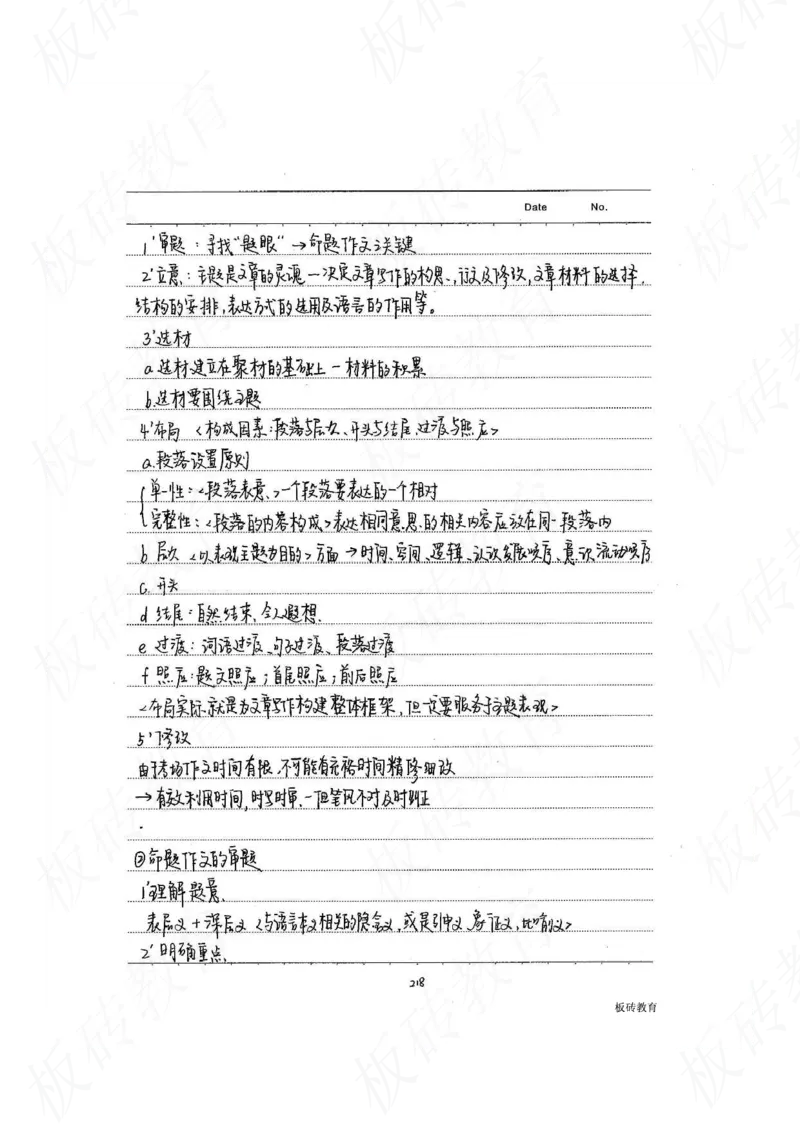 Date No.
1' 审题：寻找"题眼" →命题作文之关键
2' 立意：主题是文章的灵魂 — 决定文章写作的构思、议及修改，文章材料的选择，
结构的安排，表达方式的选用及语言的作用等。
3' 选材
a.选材建立在聚材的基础上 — 材料的积累
b.选材要围绕主题
4' 布局 <构成因素：段落与层次、开头与结尾、过渡与照应>
a.段落设置原则
单一性：<段落表意>一个段落要表达的一个相对
完整性：<段落的内容构成>表达相同意思的相关内容应放在同一段落内
b 层次 <以表现主题为目的>方面 →时间、空间、逻辑、认识发展顺序、意识流动顺序
c. 开头
d 结尾：自然结束，令人遐想.
e 过渡：词语过渡、句子过渡、段落过渡
f 照应：题文照应；首尾照应；前后照应
<布局实际就是为文章写作构建整体框架，但一定要服务于主题表现>
5' 修改
由于考场作文时间有限，不可能有充裕时间精修细改
→有效利用时间，时写时审，一但笔误不对及时纠正
②命题作文的审题
1' 理解题意.
表层义 + 深层义 <与语言本义相关的隐含义，或是引申义、象征义，比喻义>
2' 明确重点.
218
板砖教育